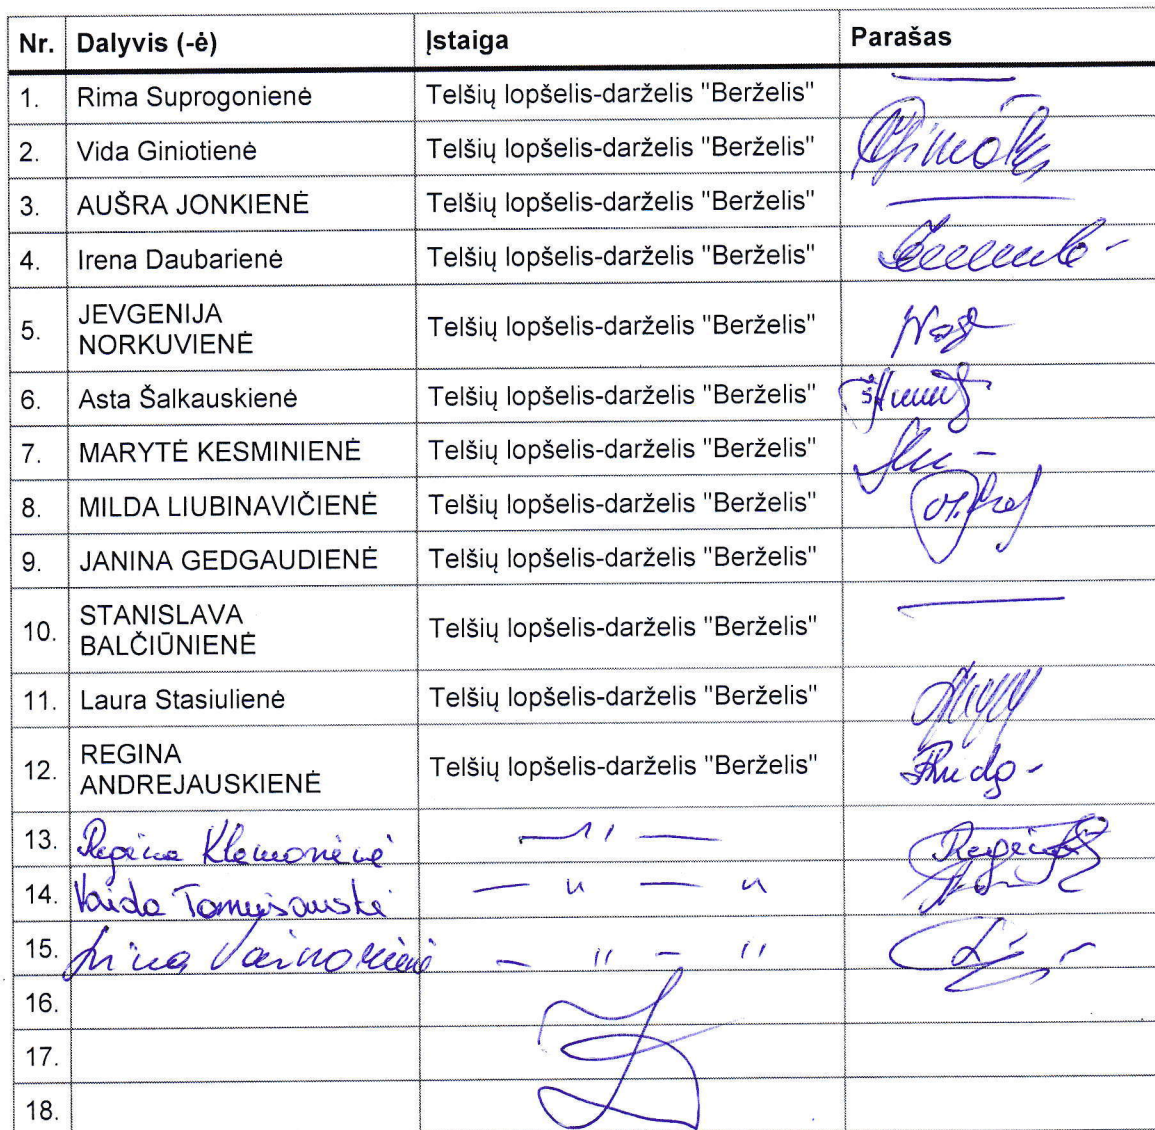 Nr. Dalyvis (-ė) Įstaiga Parašas
1. Rima Suprogonienė Telšių lopšelis-darželis "Berželis"
2. Vida Giniotienė Telšių lopšelis-darželis "Berželis"
3. AUŠRA JONKIENĖ Telšių lopšelis-darželis "Berželis"
4. Irena Daubarienė Telšių lopšelis-darželis "Berželis"
5. JEVGENIJA
NORKUVIENĖ Telšių lopšelis-darželis "Berželis"
6. Asta Šalkauskienė Telšių lopšelis-darželis "Berželis"
7. MARYTĖ KESMINIENĖ Telšių lopšelis-darželis "Berželis"
8. MILDA LIUBINAVIČIENĖ Telšių lopšelis-darželis "Berželis"
9. JANINA GEDGAUDIENĖ Telšių lopšelis-darželis "Berželis"
10. STANISLAVA
BALČIŪNIENĖ Telšių lopšelis-darželis "Berželis"
11. Laura Stasiulienė Telšių lopšelis-darželis "Berželis"
12. REGINA
ANDREJAUSKIENĖ Telšių lopšelis-darželis "Berželis"
13. Regina Klemonienė — " —
14. Vaida — " — "
15. Vainorienė — " — "
16.
17.
18.